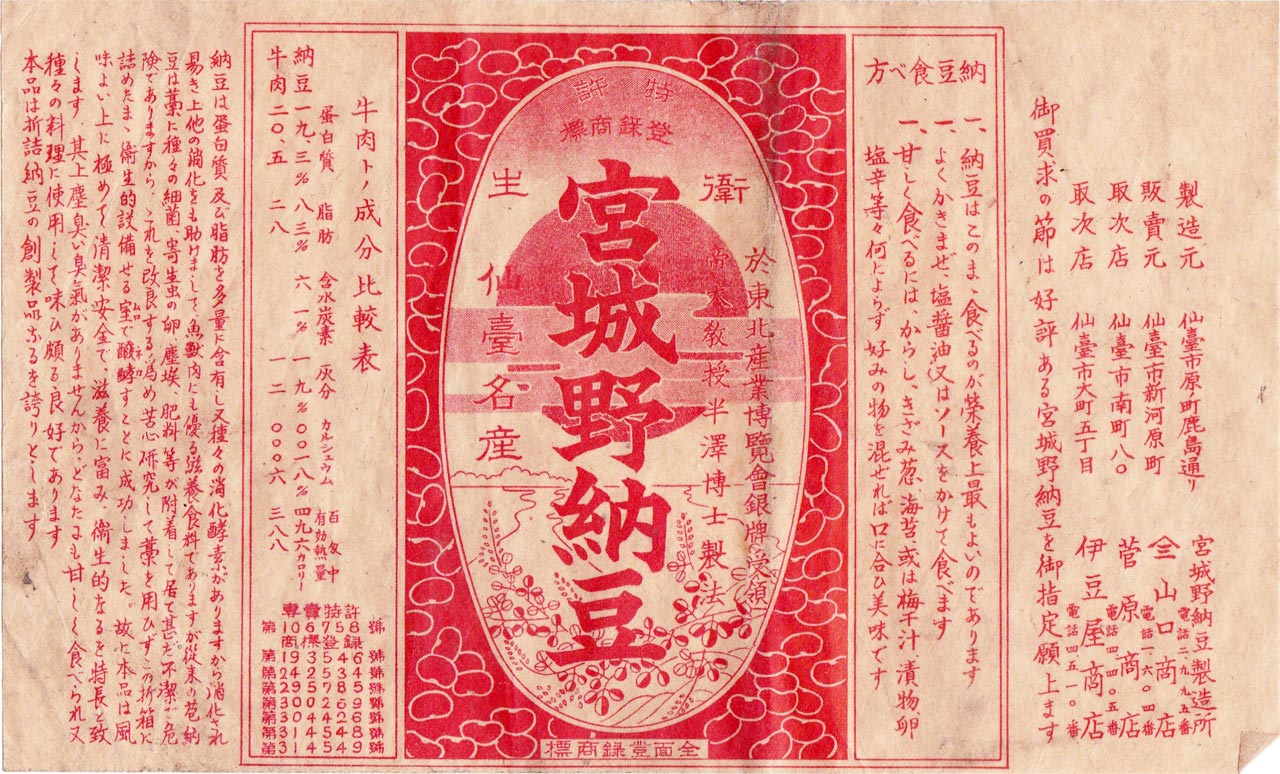 製造元 仙臺市原町鹿島通り 宮城野納豆製造所 電話二九九五番
販賣元 仙臺市新河原町 山口商店
取次店 仙臺市南町八〇 菅原商店 電話四四〇五番
取次店 仙臺市大町五丁目 伊豆屋商店 電話四五一〇番
御買求の節は好評ある宮城野納豆を御指定願上ます
納豆食べ方
一、納豆はこのまゝ食べるのが榮養上最もよいのであります
一、よくかきまぜ、塩醤油又はソースをかけて食べます
一、甘しく食べるには、からし、きざみ葱、海苔、或は梅干汁、漬物、卵
塩辛等々何によらず好みの物を混せれば口に合ひ美味です
特許
登録商標
衛生
於東北産業博覽會銀牌受領
帝大教授半澤博士製法
宮城野納豆
仙臺名産
全面登錄商標
牛肉トノ成分比較表
蛋白質 脂肪 含水炭素 灰分 カルシュウム 百匁中有効熱量
納豆 一九、三% 八三% 六一% 一九% 〇〇二八% 四九六カロリー
牛肉 二〇、五 二八 一二 〇〇〇六 三八八
專賣特許
商標登録
納豆は蛋白質及び脂肪を多量に含有し又種々の消化酵素がありますから消化され
易き上他の消化をも助けまして魚獸肉にも優る滋養食料でありますが從来の苞納
豆は藁に種々の細菌、寄生虫の卵、塵埃、肥料等が附着して居て甚だ不潔で危
険でありますから、これを改良する為め苦心研究して藁を用ひずこの折箱に
詰めたまゝ衛生的設備せる室で醗酵すことに成功しました。故に本品は風
味よい上に極めて清潔、安全で、滋養に富み、衛生的なるを特長と致
します 其上塵臭い臭氣がありませんから、どなたにも甘しく食べられ又
種々の料理に使用して味ひ頗る良好であります
本品は折詰納豆の創製品なるを誇りとします